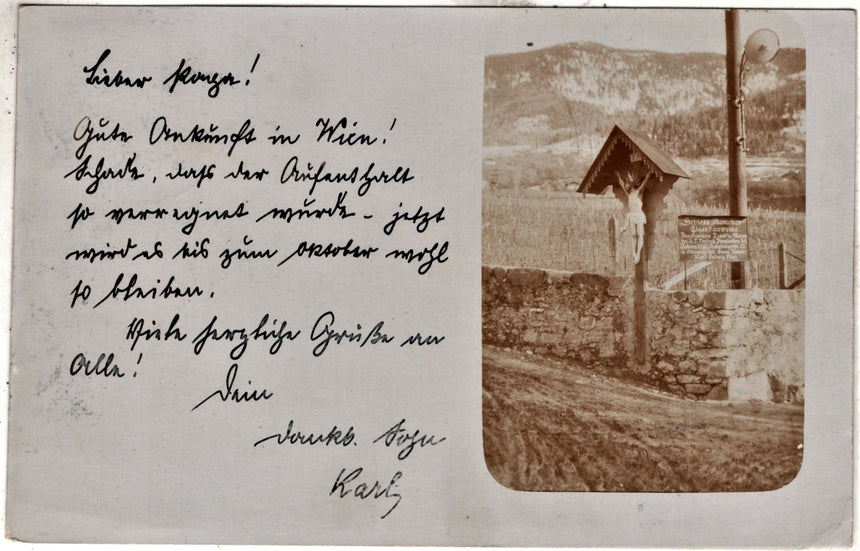 Lieber Papa!
Gute Ankunft in Wien!
Schade, daſs der Aufenthalt
so verregnet wurde – jetzt
wird es bis zum Oktober wohl
so bleiben.
Viele herzliche Grüße an
Alle!
Dein
dankb. Sohn
Karl
Schloss
Eigenbauweine